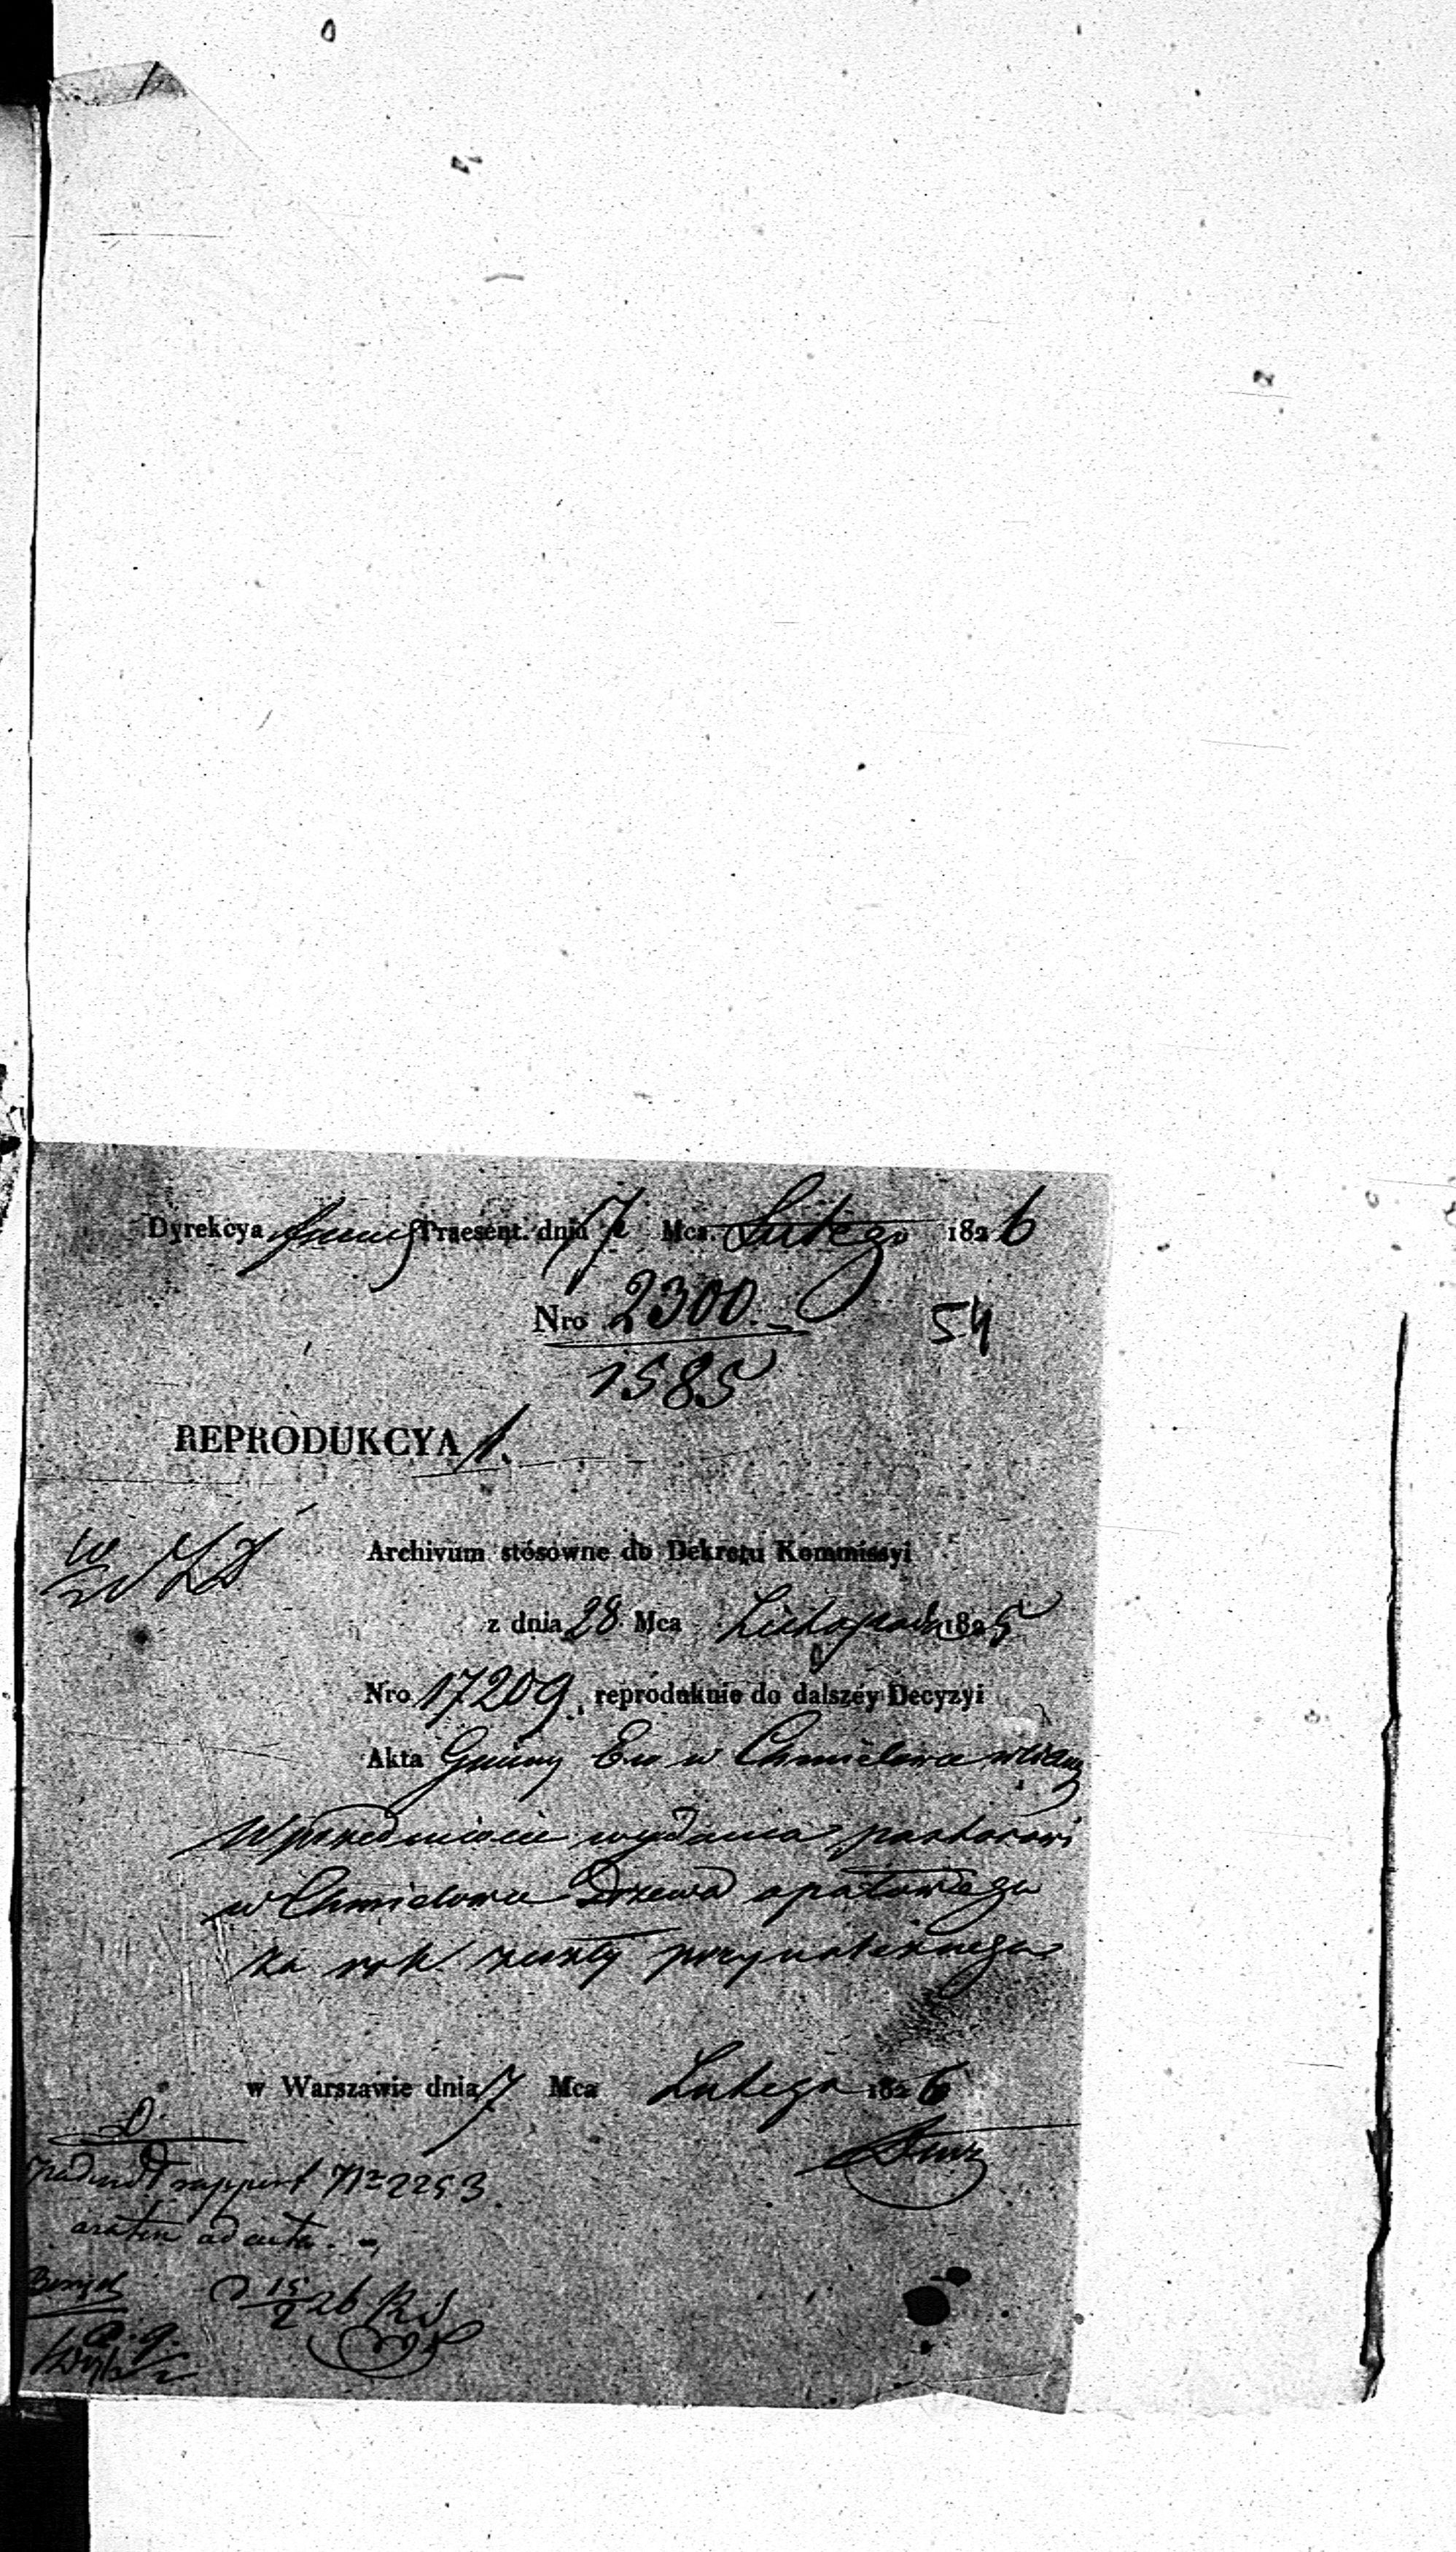 Dyrekcya Praesent. dnia 7 Mca. Lutego 1826
Nro 2300.
54
1585
REPRODUKCYA 1.
Archivum stósowne do Dekretu Kommissyi
z dnia 28 Mca Listopada 1825
Nro 17209. reprodukuie do dalszéy Decyzyi
Akta Gminy Ew w Chmielowie
W przedmiocie wydania pastorowi
w Chmielowie Drzewa opałowego
za rok zeszły przynależnego
w Warszawie dnia 7 Mca Lutego 1826
rapport No 2253
15/2 26
a. g.